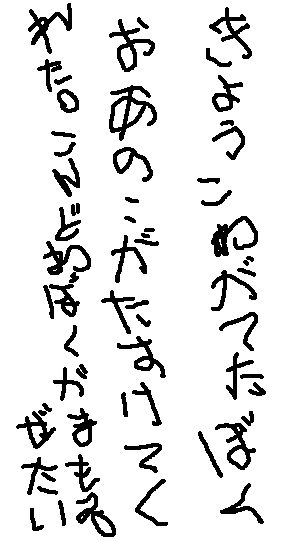 きょうこわがてたぼく
おあのこがたすけてく
れた。こんどわぼくがまもる
ぜたい